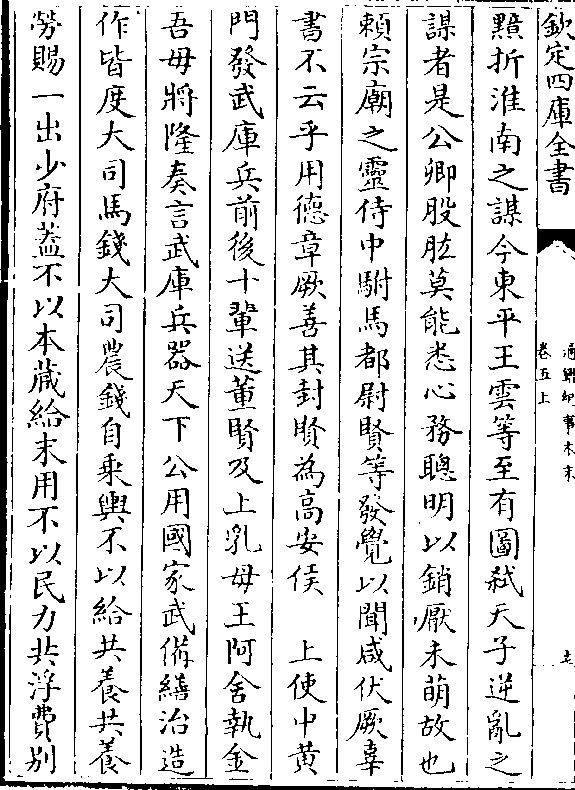 欽定四庫全書
通鑑紀事本末
卷五上
黯折淮南之謀今東平王雲等至有圖弑天子逆亂之
謀者是公卿股肱莫能悉心務聰明以銷厭未萌故也
賴宗廟之靈侍中駙馬都尉賢等發覺以聞咸伏厥辜
書不云乎用德章厥善其封賢為高安侯　上使中黄
門發武庫兵前後十輩送董賢及上乳母王阿舍執金
吾毋將隆奏言武庫兵器天下公用國家武備繕治造
作皆度大司馬錢大司農錢自乘輿不以給共養共養
勞賜一出少府葢不以本蔵給末用不以民力共浮費别